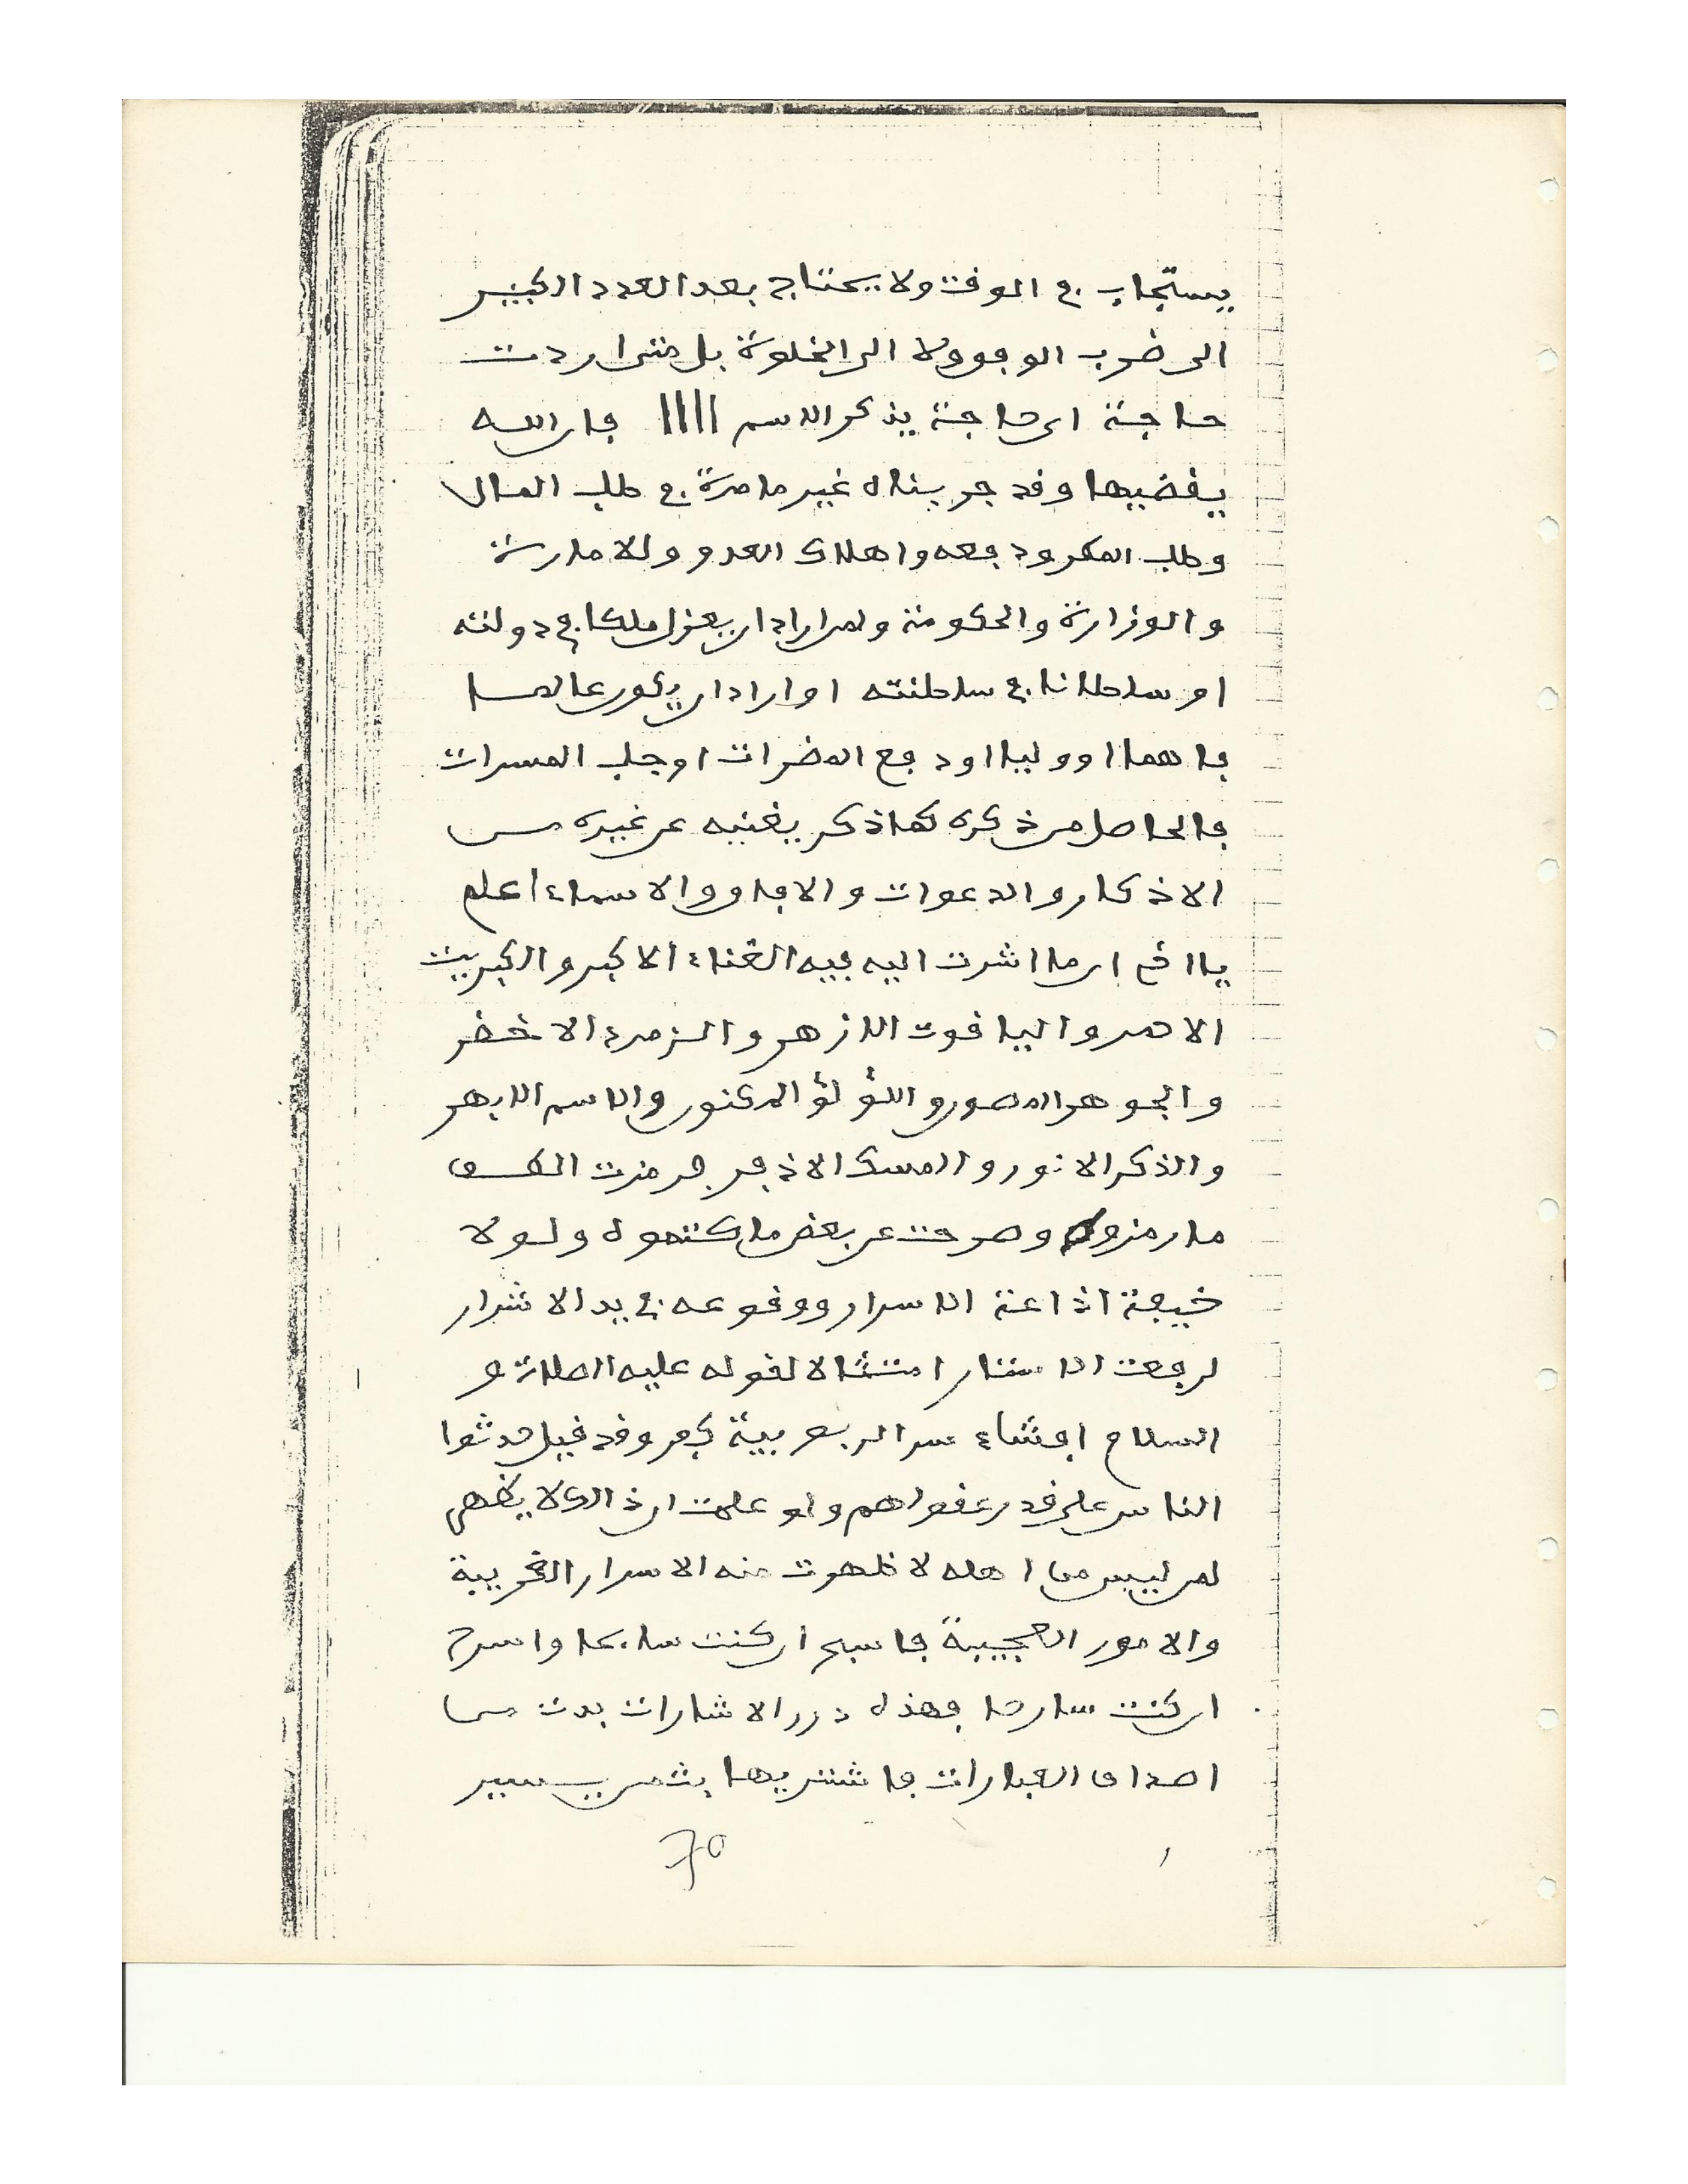 يستجاب في الوقت ولا يحتاج بعد العدد الكبير
الى ضرب الوفق ولا الى الخلوة بل متى اردت
حاجة اي حاجة يذكر الاسم ||||| فان الله
يقضيها وقد جربناه غير ما مرة في طلب المال
وطلب المكر ودفعه واهلاك العدو وللامارة
والوزارة والحكومة ولمن اراد ان يعزل ملكا في دولته
او سلطانا في سلطنته او اراد ان يكون عالما
فاهما او وليا او دفع المضرات او جلب المسرات
فالحاصل من ذكره كما ذكر يغنيه عن غيره من
الاذكار والدعوات والاوفاق والاسماء اعلم
يا اخي ان ما اشرت اليه فيه الغناء الاكبر والكبريت
الاحمر والياقوت الازهر والزمرد الاخضر
والجوهر المصون واللؤلؤ المكنون والاسم الابهر
والذكر الانور والمسك الاذفر فرمزت الكشف
ما رمزوه وصرحت عن بعض ما كتموه ولولا
خيفة اذاعة الاسرار ووقوعه في يد الاشرار
لرفعت الاستار امتثالا لقوله عليه الصلاة و
السلام افشاء سر الربوبية كفر وقد قيل حدثوا
الناس على قدر عقولهم ولو علمت ان ذالك لا يظهر
لمن ليس من اهله لاظهرت منه الاسرار الغريبة
والامور العجيبة فاسبح ان كنت سابحا واسرح
ان كنت سارحا فهذه درر الاشارات بدت من
اصداف العبارات فاشتريها بثمن يسير